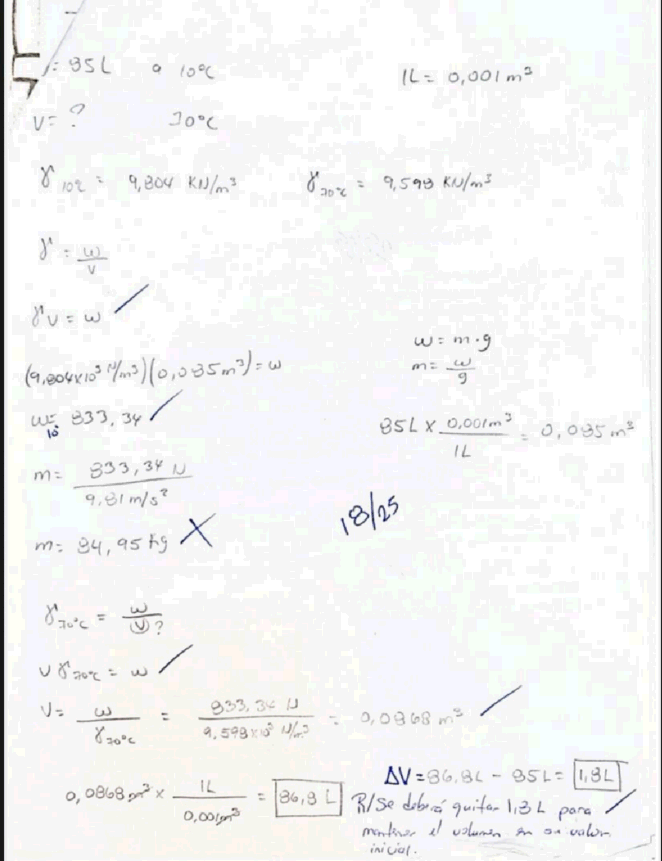 V = 85L a 10°C
1L = 0,001 m³
V = ? 70°C
γ 10°C = 9,804 KN/m³ γ 70°C = 9,598 KN/m³
γ = w/v
γV = w
w = m·g
(9,804x10³ N/m³)(0,085m³) = w
m = w/g
w 10 = 833,34
85L x 0,001m³/1L = 0,085 m³
m = 833,34 N / 9,81 m/s²
18/25
m = 84,95 kg
γ 70°C = w/V ?
V γ 70°C = w
V = w/γ 70°C = 833,34 N / 9,598x10³ N/m³ = 0,0868 m³
ΔV = 86,8L - 85L = 1,8L
0,0868 m³ x 1L/0,001m³ = 86,8 L
R/Se deberá quitar 1,8 L para
mantener el volumen en su valor
inicial.